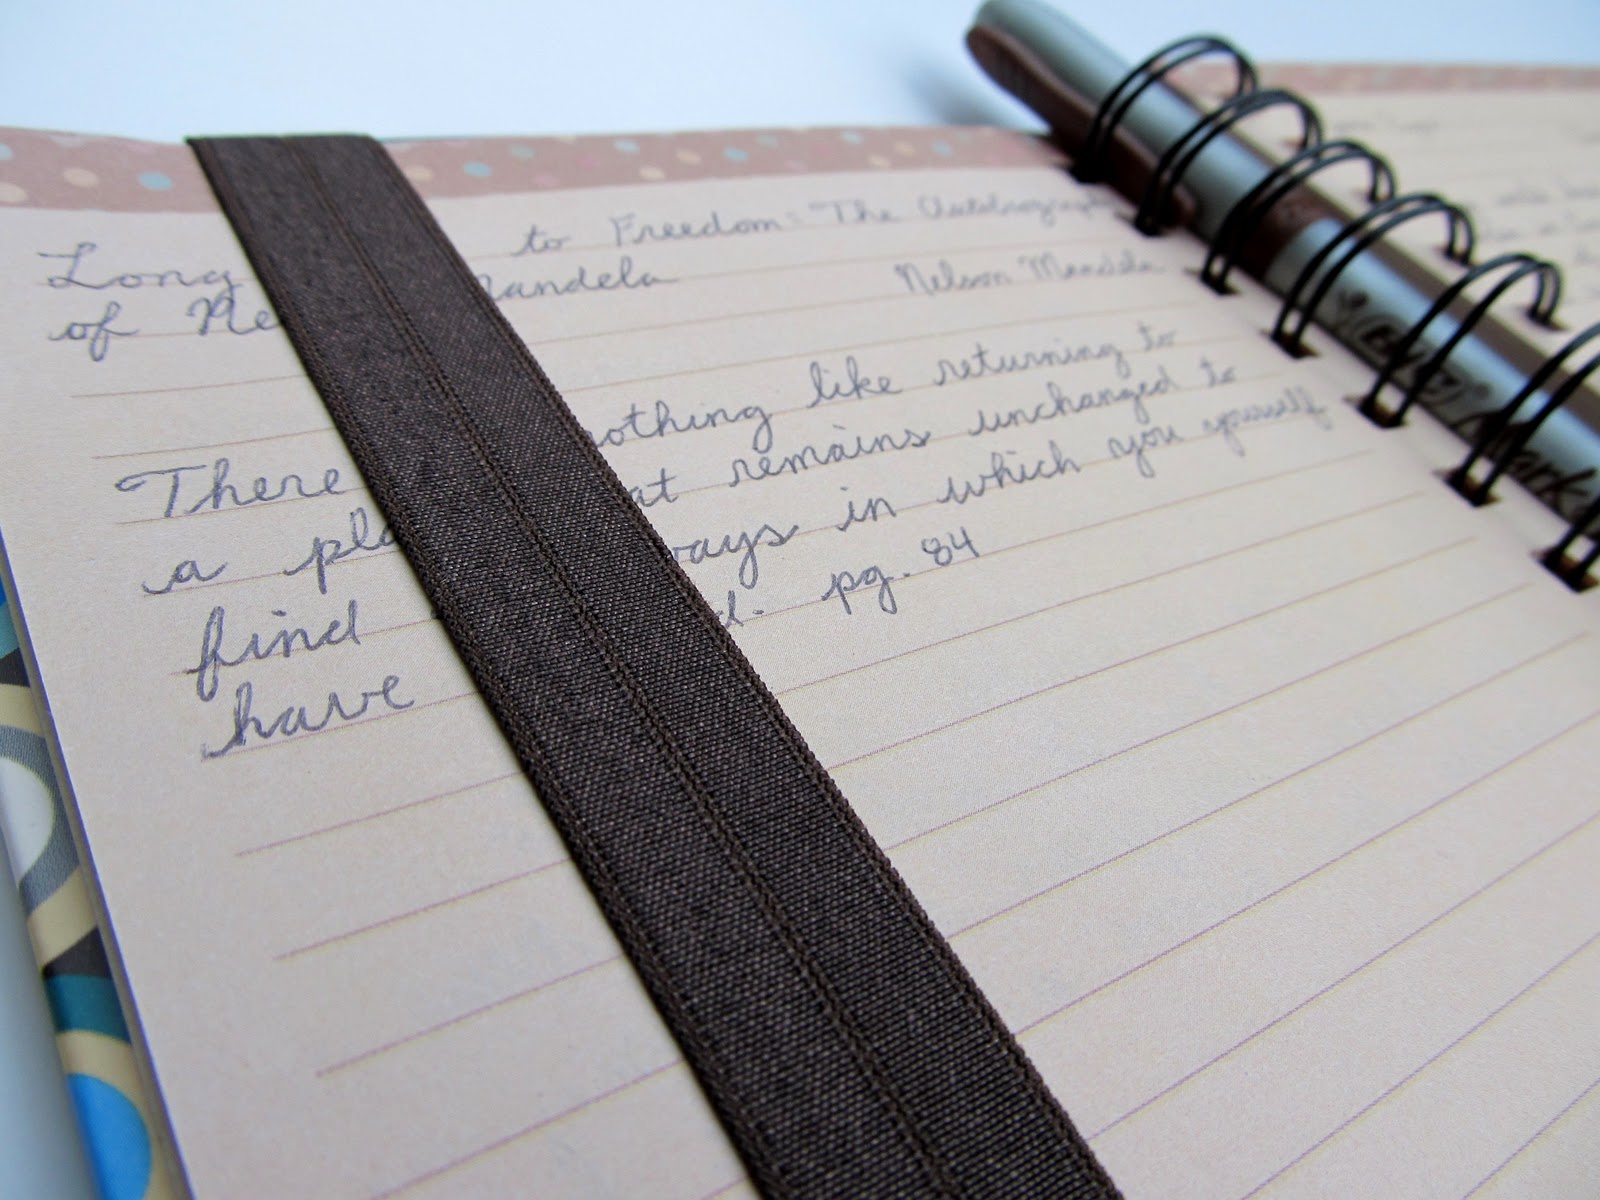 Long to Freedom: The Autobiography
of Ne andela Nelson Mandela
There nothing like returning to
a pla at remains unchanged to
find ways in which you yourself
have d. pg. 84